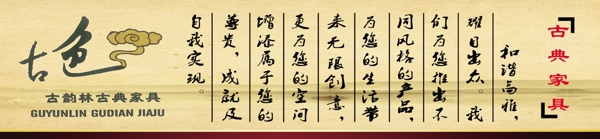 古典家具
和谐高雅，
耀目出众。我
们为您推出不
同风格的产品，
为您的生活带
来无限创意，
更为您的空间
增添属于您的
尊贵，成就及
自我实现。
古色
古韵林古典家具
GUYUNLIN GUDIAN JIAJU